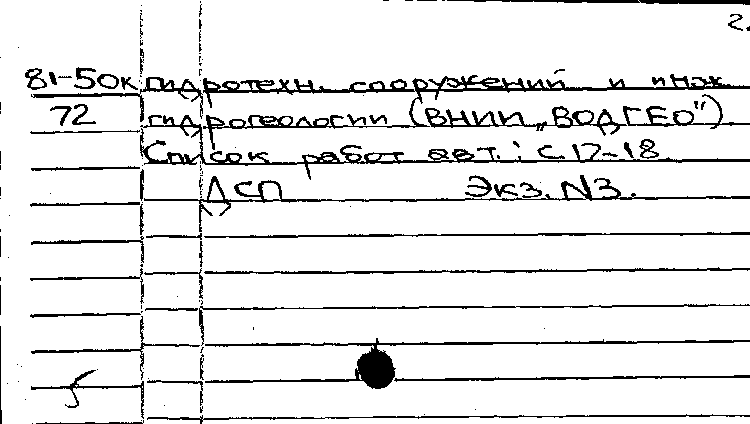 2.
81-50к гидротехн. сооружений и инж.
72 гидрогеологии (ВНИИ „ВОДГЕО").
Список работ авт.: с. 17-18.
ДСП Экз. N3.